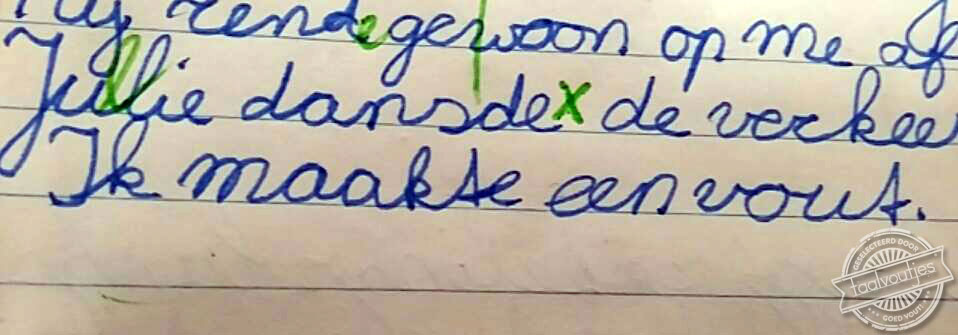 Hij rende gewoon op me af
Jullie dansde x de verkee
Ik maakte een vout.
GESELECTEERD DOOR
taalvoutjes
GOED VOUT!